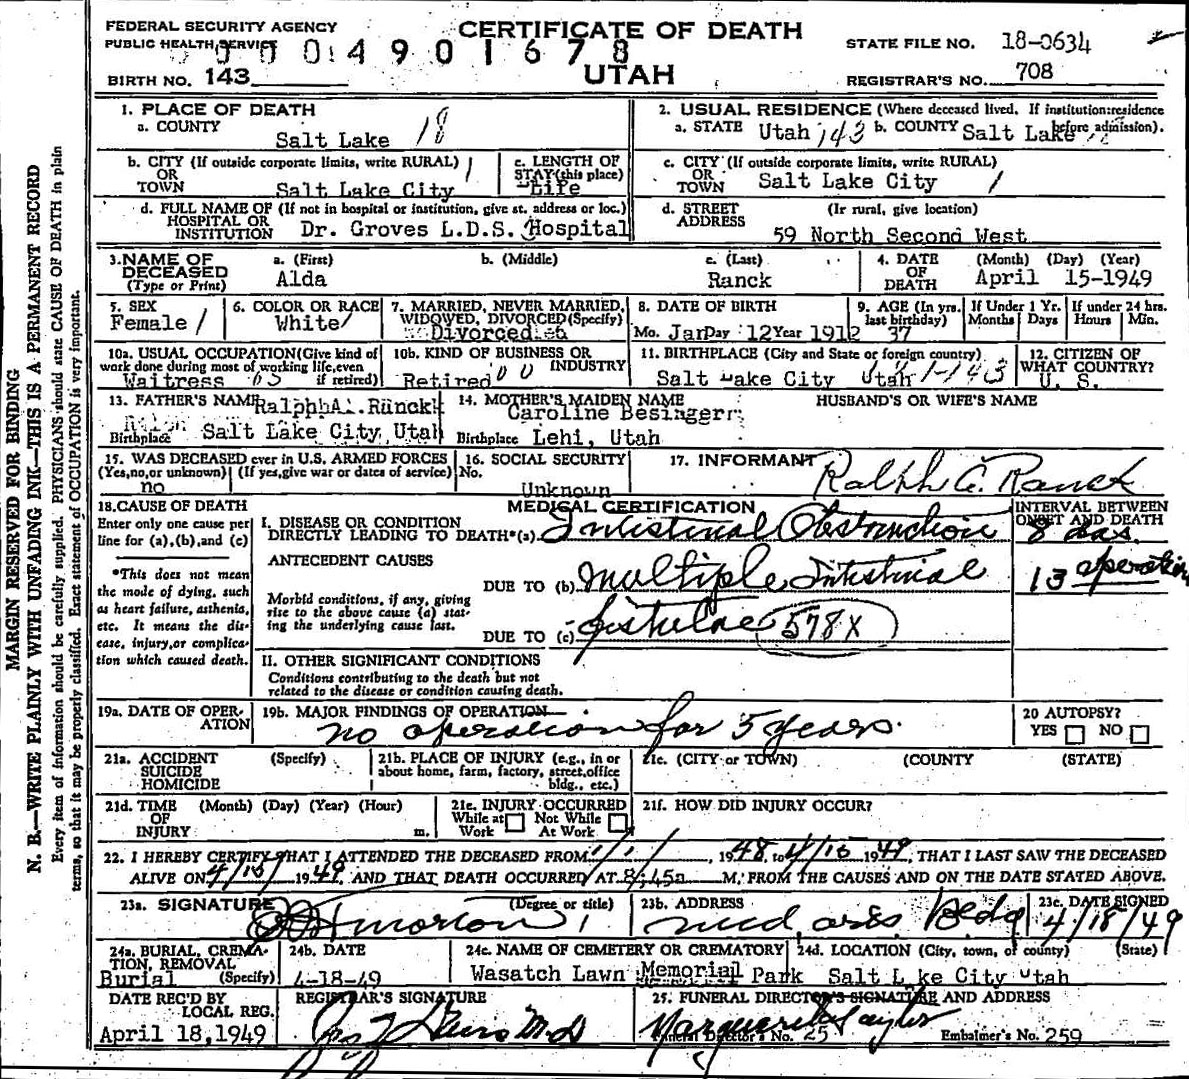 FEDERAL SECURITY AGENCY
PUBLIC HEALTH SERVICE
CERTIFICATE OF DEATH
0 4 9 0 1 6 7 8
UTAH
STATE FILE NO. 18-0634
BIRTH NO. 143
REGISTRAR'S NO. 708
1. PLACE OF DEATH
a. COUNTY
Salt Lake 18
2. USUAL RESIDENCE (Where deceased lived. If institution: residence before admission).
a. STATE Utah 143 b. COUNTY Salt Lake
b. CITY (If outside corporate limits, write RURAL)
OR
TOWN Salt Lake City
c. LENGTH OF
STAY (this place)
Life
c. CITY (If outside corporate limits, write RURAL)
OR
TOWN Salt Lake City
d. FULL NAME OF (If not in hospital or institution, give st. address or loc.)
HOSPITAL OR
INSTITUTION Dr. Groves L.D.S. Hospital
d. STREET (Ir rural, give location)
ADDRESS
59 North Second West
3. NAME OF
DECEASED
(Type or Print)
a. (First)
Alda
b. (Middle)
c. (Last)
Ranck
4. DATE
OF
DEATH
(Month) (Day) (Year)
April 15-1949
5. SEX
Female
6. COLOR OR RACE
White
7. MARRIED, NEVER MARRIED,
WIDOWED, DIVORCED (Specify)
Divorced
8. DATE OF BIRTH
Mo. Jan Day 12 Year 1912
9. AGE (In yrs.
last birthday)
37
If Under 1 Yr.
Months Days
If under 24 hrs.
Hours Min.
10a. USUAL OCCUPATION (Give kind of
work done during most of working life, even
if retired)
Waitress
10b. KIND OF BUSINESS OR
INDUSTRY
Retired
11. BIRTHPLACE (City and State or foreign country)
Salt Lake City Utah
12. CITIZEN OF
WHAT COUNTRY?
U. S.
13. FATHER'S NAME Ralph A. Ranck
Birthplace Salt Lake City, Utah
14. MOTHER'S MAIDEN NAME
Caroline Besinger
Birthplace Lehi, Utah
HUSBAND'S OR WIFE'S NAME
15. WAS DECEASED ever in U.S. ARMED FORCES
(Yes, no, or unknown) (If yes, give war or dates of service)
no
16. SOCIAL SECURITY
No.
Unknown
17. INFORMANT
Ralph A. Ranck
18. CAUSE OF DEATH
Enter only one cause per
line for (a), (b), and (c)
*This does not mean
the mode of dying, such
as heart failure, asthenia,
etc. It means the dis-
ease, injury, or complica-
tion which caused death.
MEDICAL CERTIFICATION
I. DISEASE OR CONDITION
DIRECTLY LEADING TO DEATH*(a) Intestinal Obstruction
ANTECEDENT CAUSES
Morbid conditions, if any, giving
rise to the above cause (a) stat-
ing the underlying cause last.
DUE TO (b) Multiple Intestinal
DUE TO (c) fistulae 578X
INTERVAL BETWEEN
ONSET AND DEATH
8 das.
13 operation
II. OTHER SIGNIFICANT CONDITIONS
Conditions contributing to the death but not
related to the disease or condition causing death.
19a. DATE OF OPER-
ATION
19b. MAJOR FINDINGS OF OPERATION
no operation for 5 years.
20 AUTOPSY?
YES NO
21a. ACCIDENT (Specify)
SUICIDE
HOMICIDE
21b. PLACE OF INJURY (e.g., in or
about home, farm, factory, street, office
bldg., etc.)
21c. (CITY or TOWN) (COUNTY) (STATE)
21d. TIME (Month) (Day) (Year) (Hour)
OF
INJURY m.
21e. INJURY OCCURRED
While at Not While
Work At Work
21f. HOW DID INJURY OCCUR?
22. I HEREBY CERTIFY THAT I ATTENDED THE DECEASED FROM 1/1/, 1948, to 4/15 1949, THAT I LAST SAW THE DECEASED
ALIVE ON 4/15 1949, AND THAT DEATH OCCURRED AT 8:45a M. FROM THE CAUSES AND ON THE DATE STATED ABOVE.
23a. SIGNATURE (Degree or title)
Morton
23b. ADDRESS
Med. arts Bldg
23c. DATE SIGNED
4/18/49
24a. BURIAL, CREMA-
TION, REMOVAL
(Specify)
Burial
24b. DATE
4-18-49
24c. NAME OF CEMETERY OR CREMATORY
Wasatch Lawn Memorial Park
24d. LOCATION (City, town, or county) (State)
Salt Lake City Utah
DATE REC'D BY
LOCAL REG.
April 18, 1949
REGISTRAR'S SIGNATURE
M D
25. FUNERAL DIRECTOR'S SIGNATURE AND ADDRESS
Marguerite Taylor
Funeral Director's No. 25 Embalmer's No. 259
MARGIN RESERVED FOR BINDING
N. B.—WRITE PLAINLY WITH UNFADING INK—THIS IS A PERMANENT RECORD
Every item of information should be carefully supplied. PHYSICIANS should state CAUSE OF DEATH in plain
terms, so that it may be properly classified. Exact statement of OCCUPATION is very important.